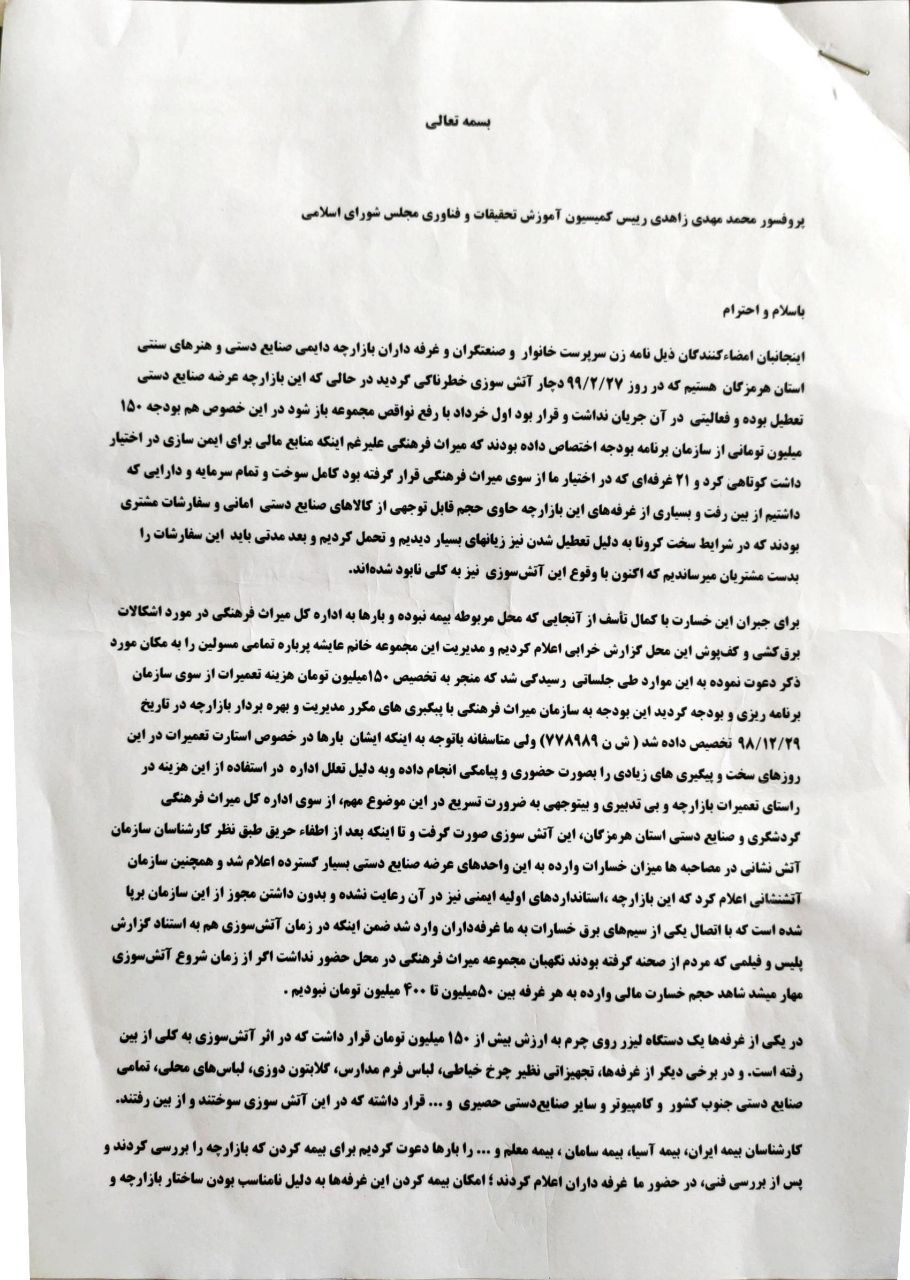 بسمه تعالی
پروفسور محمد مهدی زاهدی رییس کمیسیون آموزش تحقیقات و فناوری مجلس شورای اسلامی
باسلام و احترام
اینجانبان امضاءکنندگان ذیل نامه زن سرپرست خانوار و صنعتگران و غرفه داران بازارچه دایمی صنایع دستی و هنرهای سنتی
استان هرمزگان هستیم که در روز ۹۹/۲/۲۷ دچار آتش سوزی خطرناکی گردید در حالی که این بازارچه عرضه صنایع دستی
تعطیل بوده و فعالیتی در آن جریان نداشت و قرار بود اول خرداد با رفع نواقص مجموعه باز شود در این خصوص هم بودجه ۱۵۰
میلیون تومانی از سازمان برنامه بودجه اختصاص داده بودند که میراث فرهنگی علیرغم اینکه منابع مالی برای ایمن سازی در اختیار
داشت کوتاهی کرد و ۲۱ غرفه‌ای که در اختیار ما از سوی میراث فرهنگی قرار گرفته بود کامل سوخت و تمام سرمایه و دارایی که
داشتیم از بین رفت و بسیاری از غرفه‌های این بازارچه حاوی حجم قابل توجهی از کالاهای صنایع دستی امانی و سفارشات مشتری
بودند که در شرایط سخت کرونا به دلیل تعطیل شدن نیز زیانهای بسیار دیدیم و تحمل کردیم و بعد مدتی باید این سفارشات را
بدست مشتریان میرساندیم که اکنون با وقوع این آتش‌سوزی نیز به کلی نابود شده‌اند.
برای جبران این خسارت با کمال تأسف از آنجایی که محل مربوطه بیمه نبوده و بارها به اداره کل میراث فرهنگی در مورد اشکالات
برق‌کشی و کف‌پوش این محل گزارش خرابی اعلام کردیم و مدیریت این مجموعه خانم عایشه پرباره تمامی مسولین را به مکان مورد
ذکر دعوت نموده به این موارد طی جلساتی رسیدکی شد که منجر به تخصیص ۱۵۰میلیون تومان هزینه تعمیرات از سوی سازمان
برنامه ریزی و بودجه گردید این بودجه به سازمان میراث فرهنگی با پیگبری های مکرر مدیریت و بهره بردار بازارچه در تاریخ
۹۸/۱۲/۲۹ تخصیص داده شد ( ش ن ۷۷۸۹۸۹) ولی متاسفانه باتوجه به اینکه ایشان بارها در خصوص استارت تعمیرات در این
روزهای سخت و پیگیری های زیادی را بصورت حضوری و پیامکی انجام داده وبه دلیل تعلل اداره در استفاده از این هزینه در
راستای تعمیرات بازارچه و بی تدبیری و بیتوجهی به ضرورت تسریع در این موضوع مهم، از سوی اداره کل میراث فرهنگی
گردشگری و صنایع دستی استان هرمزگان، این آتش سوزی صورت گرفت و تا اینکه بعد از اطفاء حریق طبق نظر کارشناسان سازمان
آتش نشانی در مصاحبه ها میزان خسارات وارده به این واحدهای عرضه صنایع دستی بسیار گسترده اعلام شد و همچنین سازمان
آتشنشانی اعلام کرد که این بازارچه ،استانداردهای اولیه ایمنی نیز در آن رعایت نشده و بدون داشتن مجوز از این سازمان برپا
شده است که با اتصال یکی از سیم‌های برق خسارات به ما غرفه‌داران وارد شد ضمن اینکه در زمان آتش‌سوزی هم به استناد گزارش
پلیس و فیلمی که مردم از صحنه گرفته بودند نگهبان مجموعه میراث فرهنگی در محل حضور نداشت اگر از زمان شروع آتش‌سوزی
مهار میشد شاهد حجم خسارت مالی وارده به هر غرفه بین ۵۰میلیون تا ۴۰۰ میلیون تومان نبودیم .
در یکی از غرفه‌ها یک دستگاه لیزر روی چرم به ارزش بیش از ۱۵۰ میلیون تومان قرار داشت که در اثر آتش‌سوزی به کلی از بین
رفته است. و در برخی دیگر از غرفه‌ها، تجهیزاتی نظیر چرخ خیاطی، لباس فرم مدارس، گلابتون دوزی، لباس‌های محلی، تمامی
صنایع دستی جنوب کشور و کامپیوتر و سایر صنایع‌دستی حصیری و ... قرار داشته که در این آتش سوزی سوختند و از بین رفتند.
کارشناسان بیمه ایران، بیمه آسیا، بیمه سامان ، بیمه معلم و ... را بارها دعوت کردیم برای بیمه کردن که بازارچه را بررسی کردند و
پس از بررسی فنی، در حضور ما غرفه داران اعلام کردند ؛ امکان بیمه کردن این غرفه‌ها به دلیل نامناسب بودن ساختار بازارچه و